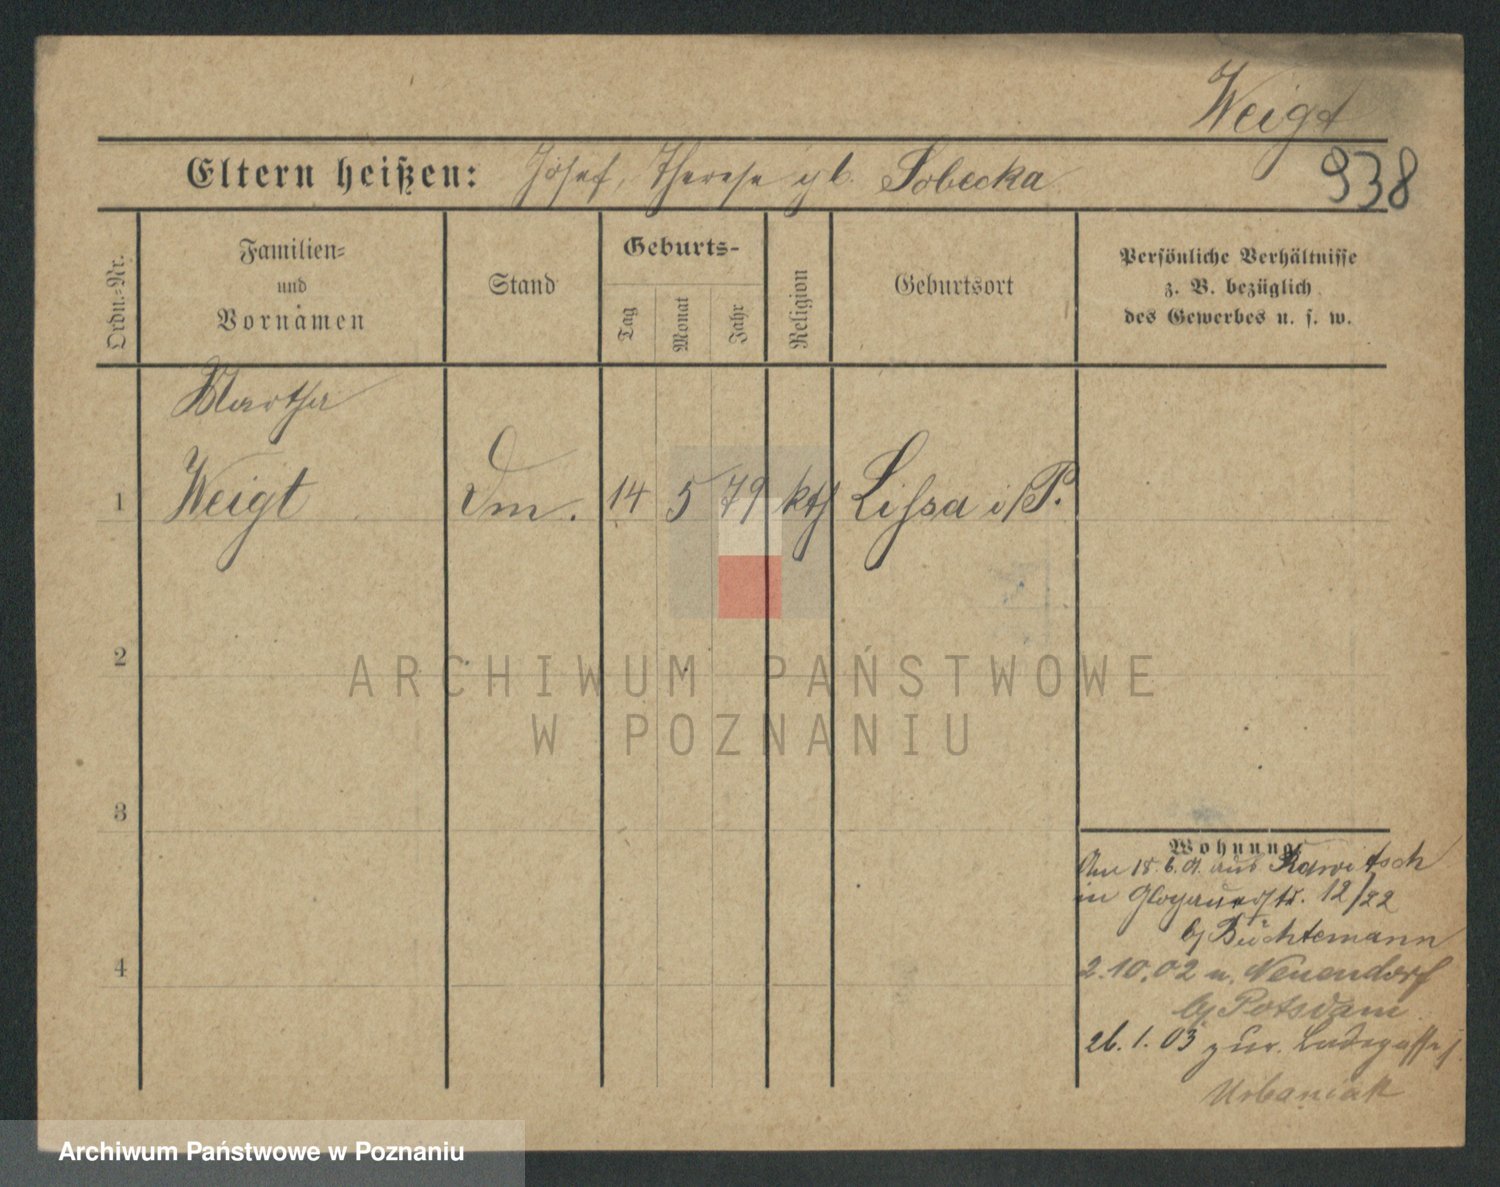 Weigt
Eltern heißen: Josef, Therese gb. Sobecka
938
Ordn.-Nr.
Familien-
und
Vornamen
Stand
Geburts-
Tag
Monat
Jahr
Religion
Geburtsort
Persönliche Verhältnisse
z. B. bezüglich
des Gewerbes u. s. w.
Martha
1 Weigt Dm. 14 5 79 kth Lissa i/P.
2
3
4
Wohnung
18.6.01. aus Rawitsch
in Glogauerstr. 12/22
b/ Büchtemann
2.10.02 n. Neuendorf
b/ Potsdam
26.1.03 zur.
Urbaniak
ARCHIWUM PAŃSTWOWE
W POZNANIU
Archiwum Państwowe w Poznaniu